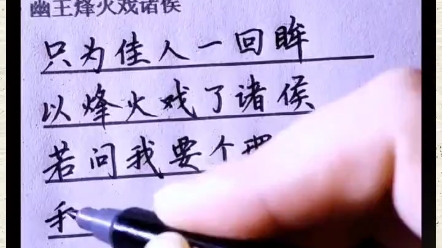 幽王烽火戏诸侯
只为佳人一回眸
以烽火戏了诸侯
若问我要个